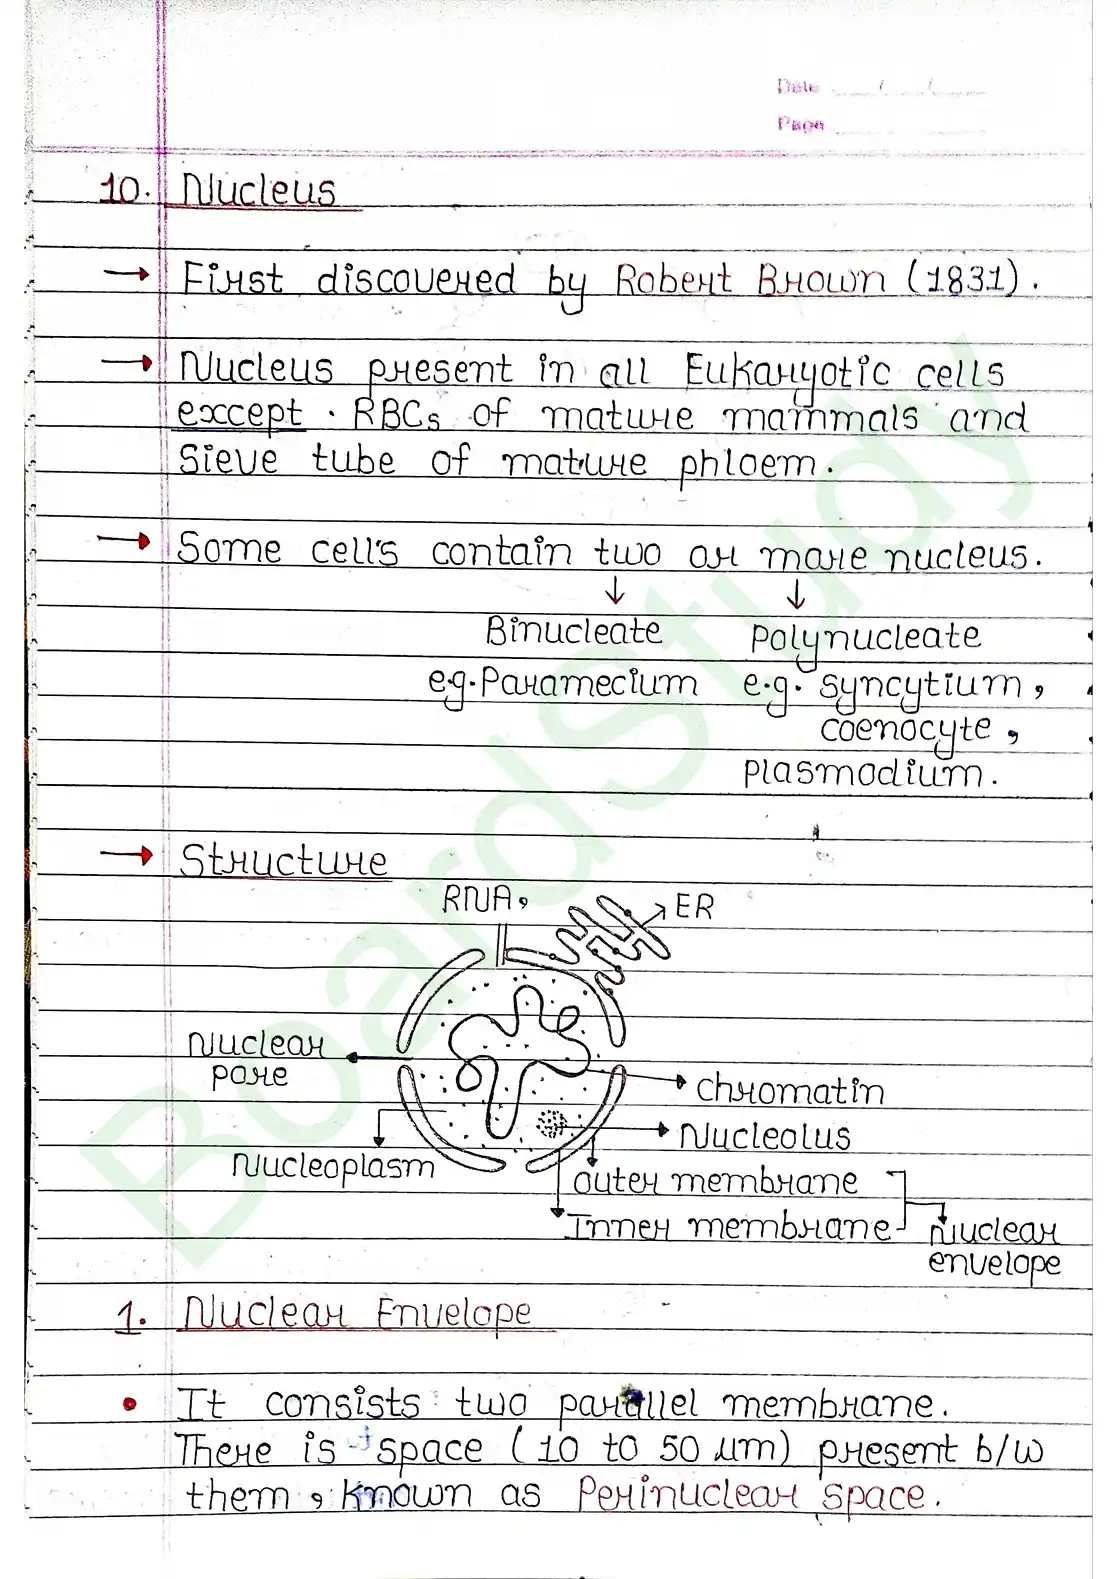 Date
Page
10. Nucleus
→ First discovered by Robert Brown (1831).
→ Nucleus present in all Eukaryotic cells
except RBCs of mature mammals and
Sieve tube of mature phloem.
→ Some cell's contain two or more nucleus.
↓ ↓
Binucleate Polynucleate
e.g. Paramecium e.g. syncytium,
coenocyte,
Plasmodium.
→ Structure
RNA, ER
Nuclear
pore
Chromatin
Nucleolus
Nucleoplasm
Outer membrane
Inner membrane
Nuclear
envelope
1. Nuclear Envelope
• It consists two parallel membrane.
There is space (10 to 50 μm) present b/w
them, known as Perinuclear space.
BoardStudy